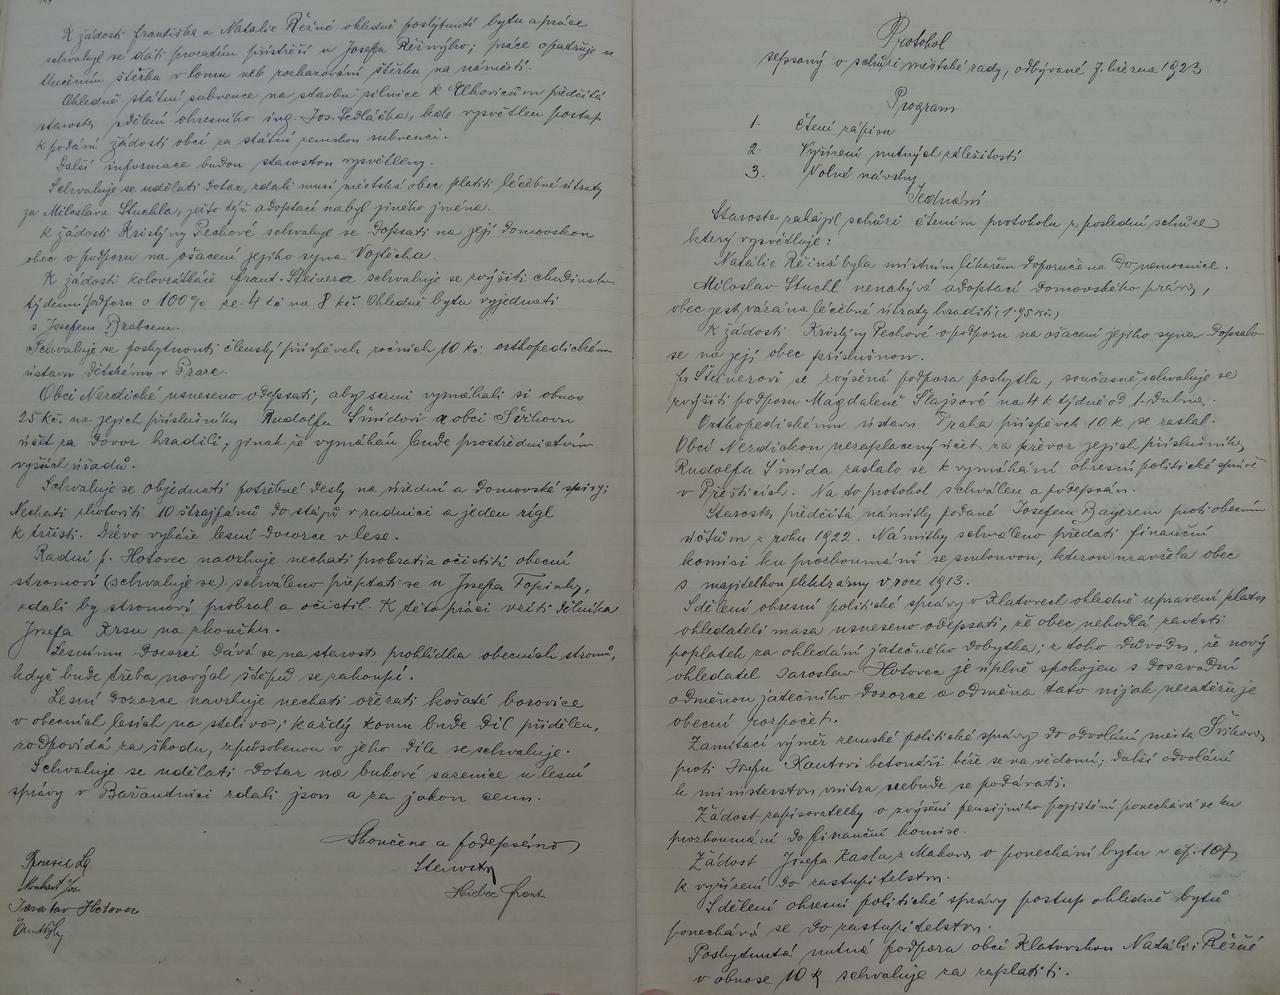 K žádosti Františka a Natalie Řežné ohledně poskytnutí bytu a práce
schvaluje se dáti prozatím přístřeší u Josefa Řežnýho; práce opatřuje se
tlučením štěrku v lomu neb rozhazování štěrku na náměstí.
Ohledně státní subvence na stavbu silnice k předčítá
starosta sdělení okresního ing. Jos. Sedláčka, kde vysvětlen postup
k podání žádosti obcí za státní zemskou subvenci.
Další informace budou starostou vysvětleny.
Schvaluje se udělati dotaz, zdali musí městská obec platiti léčebné útraty
za Miloslava Stuchla, jeito týž adoptací nabyl jiného jména.
K žádosti Kristýny Pechové schvaluje se dopsati na její domovskou
obec o podporu na ošacení jejího syna Vojtěcha.
K žádosti kolovrátkáře Frant. Steinera schvaluje se zvýšiti chudinskou
týdenní podporu o 100% ze 4 kč na 8 kč. Ohledně bytu vyjednati
s Josefem Brabcem.
Schvaluje se poskytnouti členský příspěvek ročních 10 Kč orthopedickému
ústavu dětskému v Praze.
Obci Nezdické usneseno odepsati, aby sami vymáhali si obnos
25 Kč. na jejich příslušníku Rudolfu Šmídovi a obci Švihovu
účet za dovoz hradili; jinak že vymáhán bude prostřednictvím
vyšších úřadů.
Schvaluje se objednati potřebné desky na úřední a domovské spisy;
Nechati zhotoviti 10 štrajfánů do stájů v radnici a jeden rígl
k tržišti. Dřevo vybéře lesní dozorce v lese.
Radní p. Hotovec navrhuje nechati probrati a očistiti obecní
stromoví (schvaluje se) schváleno přeptati se u Josefa Topinky,
zdali by stromoví probral a očistil. K této práci vzíti dělníka
Josefa Krsu na zkoušku.
Lesnímu dozorci dává se na starost prohlídka obecních stromů,
když bude třeba nových štěpů se zakoupí.
Lesní dozorce navrhuje nechati ořezati košaté borovice
v obecních lesích na stelivo; každý komu bude díl přidělen,
zodpovídá za škodu, způsobenou v jeho díle se schvaluje.
Schvaluje se udělati dotaz na bukové sazenice u lesní
správy v Bažantnici zdali jsou a za jakou cenu.
Skončeno a podepsáno
Starosta
Frant.
Jaroslav Hotovec
Protokol
sepsaný o schůzi městské rady, odbývané 7. března 1923
Program
1. Čtení zápisu
2. Vyřízení nutných záležitostí
3. Volné návrhy
Jednání
Starosta zahájil schůzi čtením protokolu z poslední schůze
který vysvětluje:
Natálie Řežná byla místním lékařem doporučena do nemocnice.
Miloslav Stuchl nenabývá adoptací domovského práva,
obec jest vázána léčebné útraty hraditi (195 Kč.)
K žádosti Kristýny Pechové o podporu na ošacení jejího syna dopsalo
se na její obec příslušnou.
Fr. Steinerovi se zvýšená podpora poskytla, současně schvaluje se
zvýšiti podporu Magdaleně Slajsové na 4 k týdně od 1. dubna.
Orthopedickému ústavu Praha příspěvek 10 k se zaslal.
Obci Nezdickou nezaplacený účet za převoz jejich příslušníka
Rudolfa Šmída zaslalo se k vymáhání okresní politické správě
v Přešticích. Na to protokol schválen a podepsán.
Starosta předčítá námitky podané Josefem Bayerem proti obecním
účtům z roku 1922. Námitky schváleno předati finanční
komisi ku prozkoumání se smlouvou, kterou uzavřela obec
s majitelkou elektrárny v roce 1913.
Sdělení okresní politické správy v Klatovech ohledně upravení platu
ohledateli masa usneseno odepsati, že obec nehodlá zavésti
poplatek za ohledání jatečného dobytka; z toho důvodu, že nový
ohledatel Jaroslav Hotovec je úplně spokojen s dosavadní
odměnou jatečního dozorce a odměna tato nijak nezatěžuje
obecní rozpočet.
Zamítací výměr zemské politické správy do odvolání města Švihova
proti Josefu Kantovi betonáři béře se na vědomí; další odvolání
k ministerstvu vnitra nebude se podávati.
Žádost zapisovatelky o zvýšení pensijního pojištění ponechává se ku
prozkoumání do finanční komise.
Žádost Josefa Kasla z Malovic o ponechání bytu v čp. 107
k vyřízení do zastupitelstva.
Sdělení okresní politické správy postup ohledně bytů
ponechává se do zastupitelstva.
Poskytnutá nutná podpora obcí Klatovskou Natálii Řežné
v obnose 10 k schvaluje se zaplatiti.